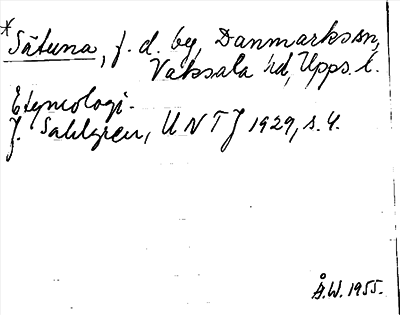 *Sätuna, f. d. by, Danmarks sn,
Vaksala hd, Upps. l.
Etymologi.
J. Sahlgren, UNTJ 1929, s. 4.
Å.W. 1955.